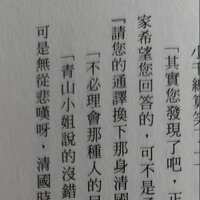 「其實您發現了吧，正
家希望您回答的，可不是
「請您的通譯換下那身清國
「不必理會那種人的
「青山小姐說的沒錯
可是無從悲嘆呀，清國時